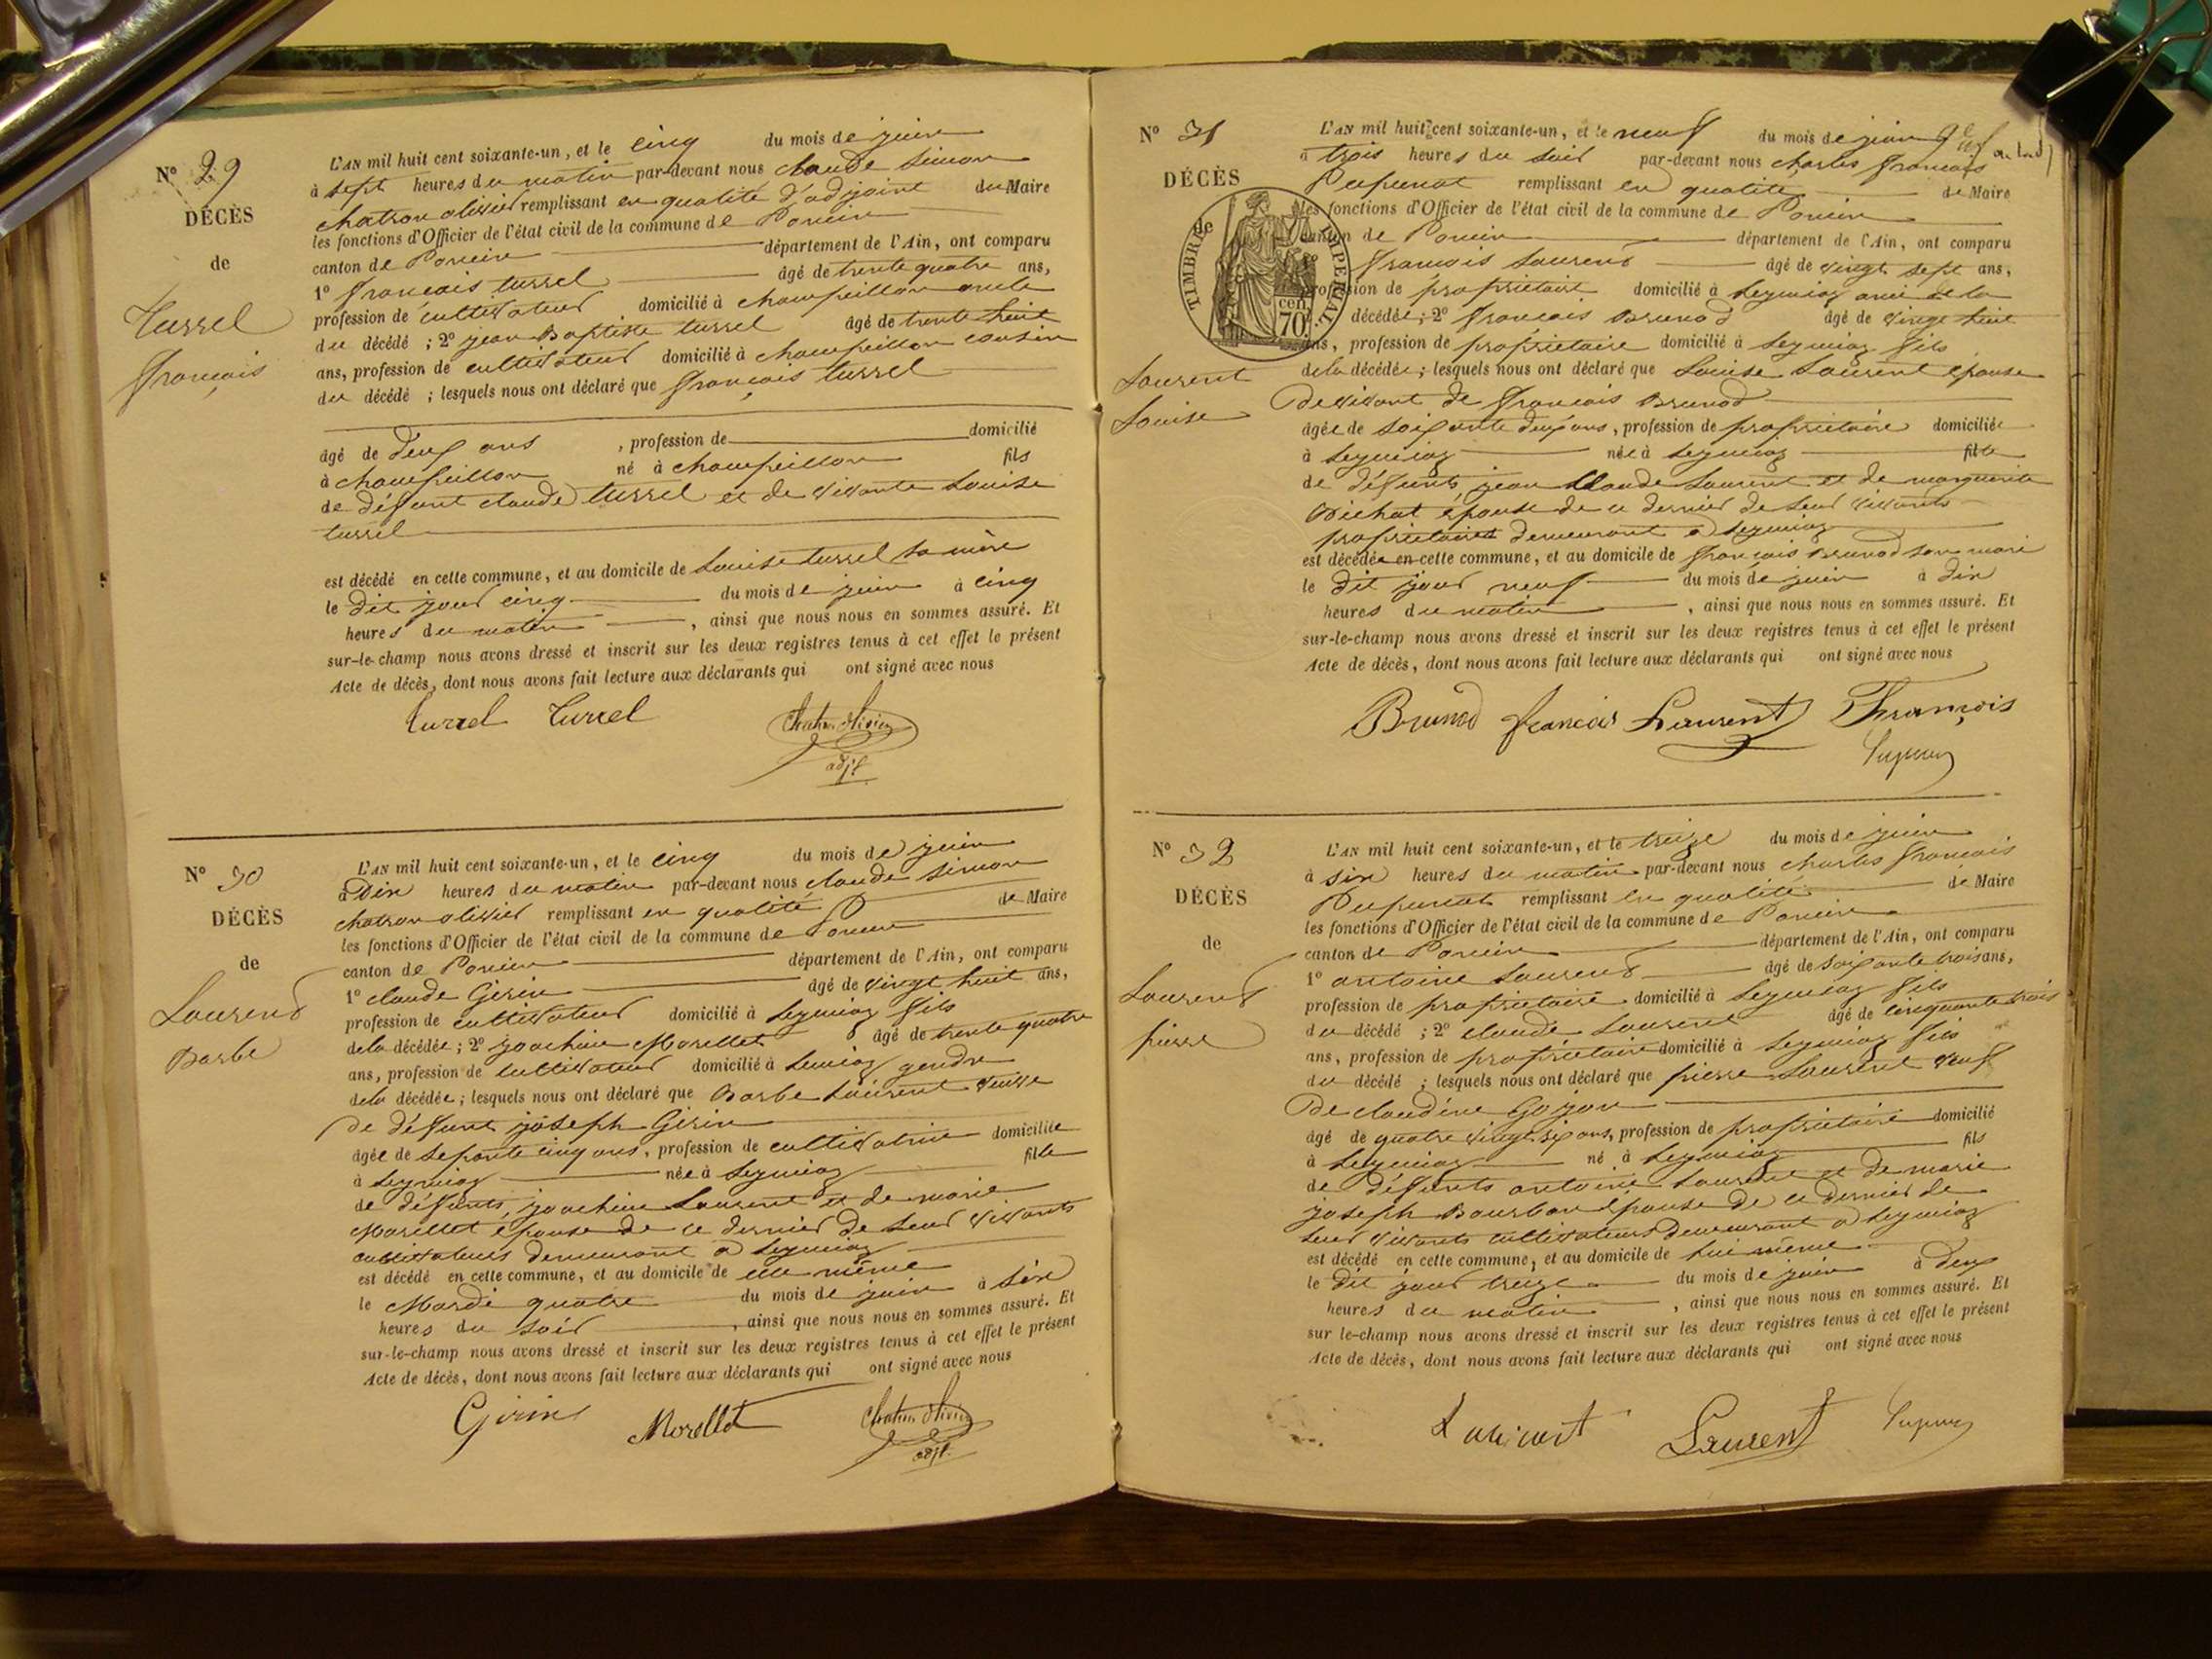 N° 29
DÉCÈS
de
Turrel
François
L'AN mil huit cent soixante-un, et le cinq du mois de juin
à sept heures du matin par-devant nous claude Simon
chatron olivier remplissant en qualité d'adjoint du Maire
les fonctions d'Officier de l'état civil de la commune de Poncin
canton de Poncin département de l'Ain, ont comparu
1° françois turrel âgé de trente quatre ans,
profession de cultivateur domicilié à champeillon oncle
du décédé ; 2° jean Baptiste turrel âgé de trente huit
ans, profession de cultivateur domicilié à champeillon cousin
du décédé ; lesquels nous ont déclaré que françois turrel
âgé de deux ans , profession de domicilié
à champeillon né à champeillon fils
de défunt claude turrel et de vivante Louise
turrel
est décédé en cette commune, et au domicile de Louise turrel sa mère
le dit jour cinq du mois de juin à cinq
heures du matin , ainsi que nous nous en sommes assuré. Et
sur-le-champ nous avons dressé et inscrit sur les deux registres tenus à cet effet le présent
Acte de décès, dont nous avons fait lecture aux déclarants qui ont signé avec nous
Turrel Turrel Chatron Olivier
adjt
N° 30
DÉCÈS
de
Laurent
Barbe
L'AN mil huit cent soixante-un, et le cinq du mois de juin
à Dix heures du matin par-devant nous claude Simon
chatron olivier remplissant en qualité de Maire
les fonctions d'Officier de l'état civil de la commune de Poncin
canton de Poncin département de l'Ain, ont comparu
1° claude Girin âgé de vingt huit ans,
profession de cultivateur domicilié à Leymiaz fils
de la décédée ; 2° joachim Morellet âgé de trente quatre
ans, profession de cultivateur domicilié à Lemiaz gendre
de la décédée ; lesquels nous ont déclaré que Barbe Laurent veuve
De défunt joseph Girin
âgée de septante cinq ans, profession de cultivatrice domiciliée
à Leymiaz née à Leymiaz fille
de défunts, joachim Laurent et de marie
Morellet épouse de ce dernier de leur vivants
cultivateurs demeurant à Leymiaz
est décédé en cette commune, et au domicile de elle même
le Mardi quatre du mois de juin à six
heures du soir , ainsi que nous nous en sommes assuré. Et
sur-le-champ nous avons dressé et inscrit sur les deux registres tenus à cet effet le présent
Acte de décès, dont nous avons fait lecture aux déclarants qui ont signé avec nous
Girin Morellet Chatron Olivier
adjt.
N° 31
DÉCÈS
de
Laurent
Louise
TIMBRE IMPERIAL
cen 70
L'AN mil huit cent soixante-un, et le neuf du mois de juin
à trois heures du soir par-devant nous charles françois
Pupunat remplissant en qualité de Maire
les fonctions d'Officier de l'état civil de la commune de Poncin
canton de Poncin département de l'Ain, ont comparu
1° françois Laurent âgé de vingt sept ans,
profession de propriétaire domicilié à Leymiaz ami de la
décédée ; 2° françois Brunod âgé de vingt huit
ans, profession de propriétaire domicilié à Leymiaz fils
de la décédée ; lesquels nous ont déclaré que Louise Laurent épouse
De vivant de françois Brunod
âgée de soixante deux ans, profession de propriétaire domiciliée
à Leymiaz née à Leymiaz fille
de défunts jean claude Laurent et de marguerite
Bichat épouse de ce dernier de leur vivants
propriétaires demeurant à Leymiaz
est décédée en cette commune, et au domicile de françois Brunod son mari
le dit jour neuf du mois de juin à dix
heures du matin , ainsi que nous nous en sommes assuré. Et
sur-le-champ nous avons dressé et inscrit sur les deux registres tenus à cet effet le présent
Acte de décès, dont nous avons fait lecture aux déclarants qui ont signé avec nous
Brunod françois Laurent François
Pupunat
N° 32
DÉCÈS
de
Laurent
pierre
L'AN mil huit cent soixante-un, et le treize du mois de juin
à six heures du matin par-devant nous charles françois
Pupunat remplissant en qualité de Maire
les fonctions d'Officier de l'état civil de la commune de Poncin
canton de Poncin département de l'Ain, ont comparu
1° antoine Laurent âgé de soixante trois ans,
profession de propriétaire domicilié à Leymiaz fils
du décédé ; 2° claude Laurent âgé de cinquante trois
ans, profession de propriétaire domicilié à Leymiaz fils
du décédé ; lesquels nous ont déclaré que pierre Laurent veuf
De claudine Gojon
âgé de quatre vingt six ans, profession de propriétaire domicilié
à Leymiaz né à Leymiaz fils
de défunts antoine Laurent et de marie
joseph Bourbon épouse de ce dernier de
leur vivants cultivateurs demeurant à Leymiaz
est décédé en cette commune, et au domicile de lui même
le dit jour treize du mois de juin à deux
heures du matin , ainsi que nous nous en sommes assuré. Et
sur le-champ nous avons dressé et inscrit sur les deux registres tenus à cet effet le présent
Acte de décès, dont nous avons fait lecture aux déclarants qui ont signé avec nous
Laurent Laurent Pupunat